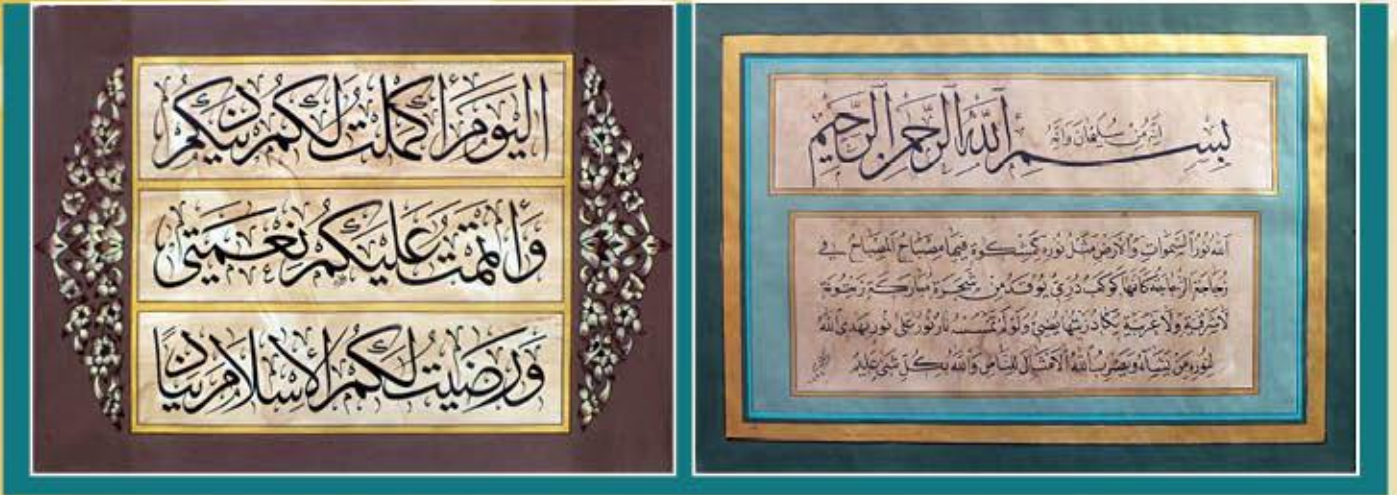 اليوم أكملت لكم دينكم
وأتممت عليكم نعمتي
ورضيت لكم الإسلام دينا
إنه من سليمان وإنه
بسم الله الرحمن الرحيم
الله نور السموات والأرض مثل نوره كمشكوة فيها مصباح المصباح في
زجاجة الزجاجة كأنها كوكب دري يوقد من شجرة مباركة زيتونة
لا شرقية ولا غربية يكاد زيتها يضيء ولو لم تمسسه نار نور على نور يهدي الله
لنوره من يشاء ويضرب الله الأمثال للناس والله بكل شيء عليم